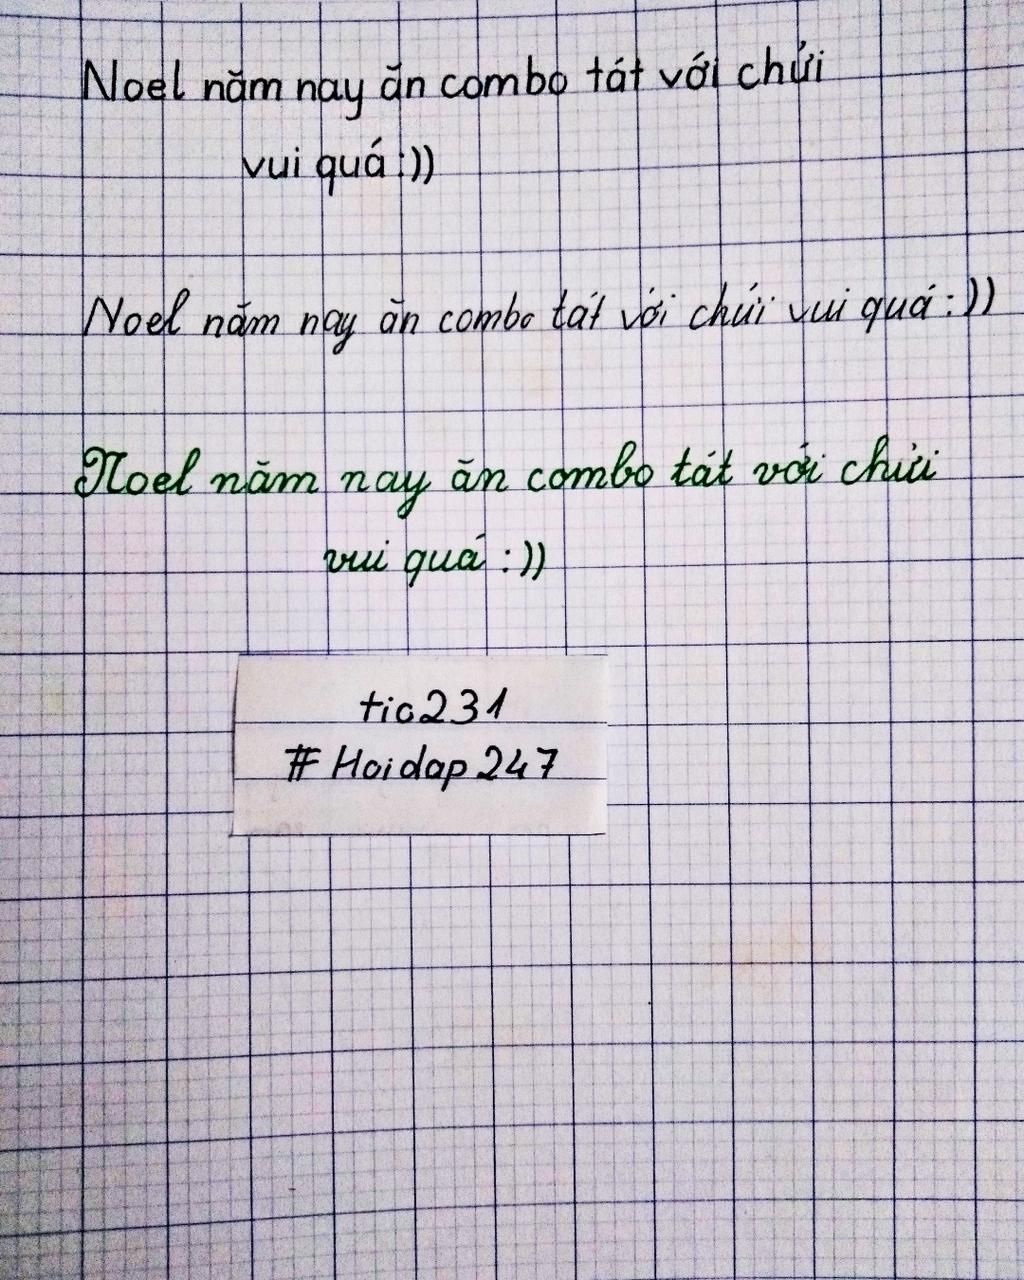 Noel năm nay ăn combo tát với chửi
vui quá :))
Noel năm nay ăn combo tát với chửi vui quá :))
Noel năm nay ăn combo tát với chửi
vui quá :))
tic231
#Hoidap247